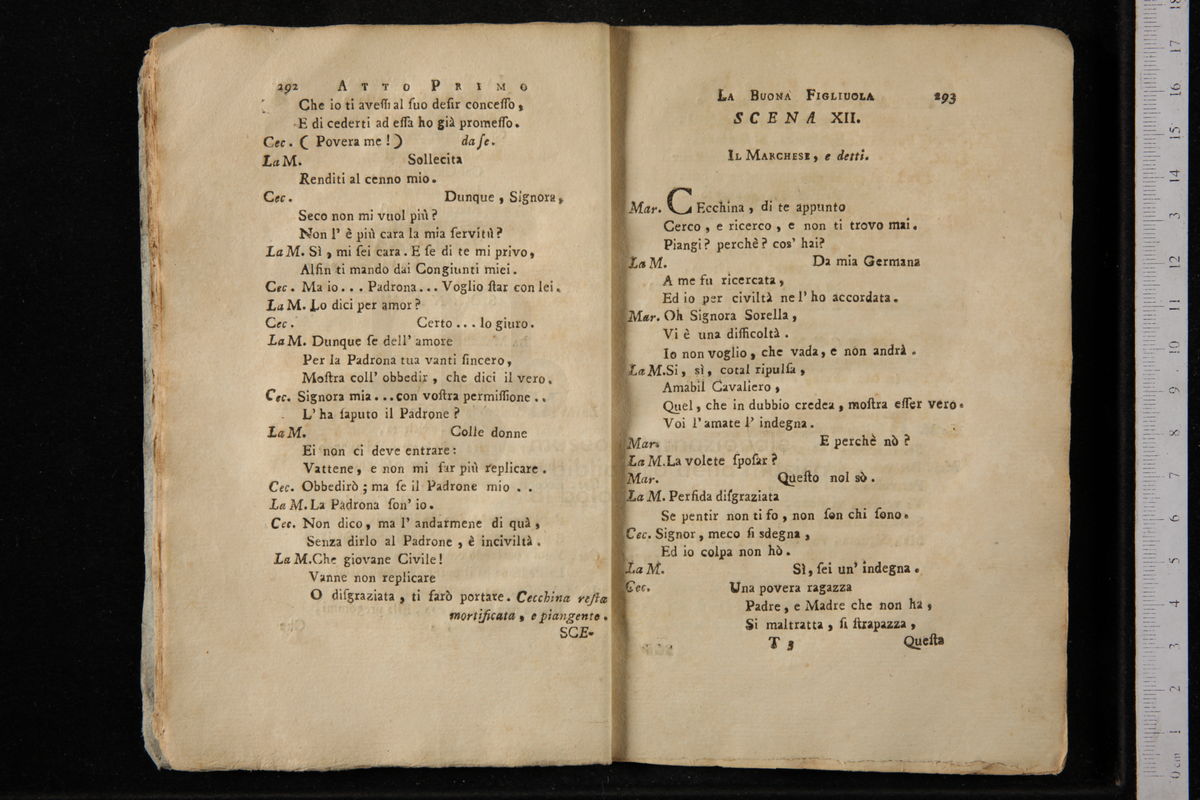 292 ATTO PRIMO
Che io ti aveſſi al ſuo deſir conceſſo,
E di cederti ad eſſa ho già promeſſo.
Cec. ( Povera me! ) da ſe.
La M. Sollecita
Renditi al cenno mio.
Cec. Dunque, Signora,
Seco non mi vuol più?
Non l' è più cara la mia ſervitù?
La M. Sì, mi ſei cara. E ſe di te mi privo,
Alfin ti mando dai Congiunti miei.
Cec. Ma io... Padrona... Voglio ſtar con lei.
La M. Lo dici per amor?
Cec. Certo... lo giuro.
La M. Dunque ſe dell' amore
Per la Padrona tua vanti ſincero,
Moſtra coll' obbedir, che dici il vero.
Cec. Signora mia...con voſtra permiſſione..
L' ha ſaputo il Padrone?
La M. Colle donne
Ei non ci deve entrare:
Vattene, e non mi far più replicare.
Cec. Obbedirò; ma ſe il Padrone mio . .
La M. La Padrona ſon' io.
Cec. Non dico, ma l' andarmene di quà,
Senza dirlo al Padrone, è inciviltà.
La M. Che giovane Civile!
Vanne non replicare
O diſgraziata, ti farò portare. Cecchina reſta
mortificata, e piangente.
SCE-
LA BUONA FIGLIUOLA 293
SCENA XII.
IL MARCHESE, e detti.
Mar. CEcchina, di te appunto
Cerco, e ricerco, e non ti trovo mai.
Piangi? perchè? cos' hai?
La M. Da mia Germana
A me fu ricercata,
Ed io per civiltà ne l' ho accordata.
Mar. Oh Signora Sorella,
Vi è una difficoltà.
Io non voglio, che vada, e non andrà.
La M. Si, sì, cotal ripulſa,
Amabil Cavaliero,
Quel, che in dubbio credea, moſtra eſſer vero.
Voi l' amate l' indegna.
Mar. E perchè nò?
La M. La volete ſpoſar?
Mar. Queſto nol sò.
La M. Perfida diſgraziata
Se pentir non ti fo, non ſon chi ſono.
Cec. Signor, meco ſi sdegna,
Ed io colpa non hò.
La M. Sì, ſei un' indegna.
Cec. Una povera ragazza
Padre, e Madre che non ha,
Si maltratta, ſi ſtrapazza,
T 3 Queſta